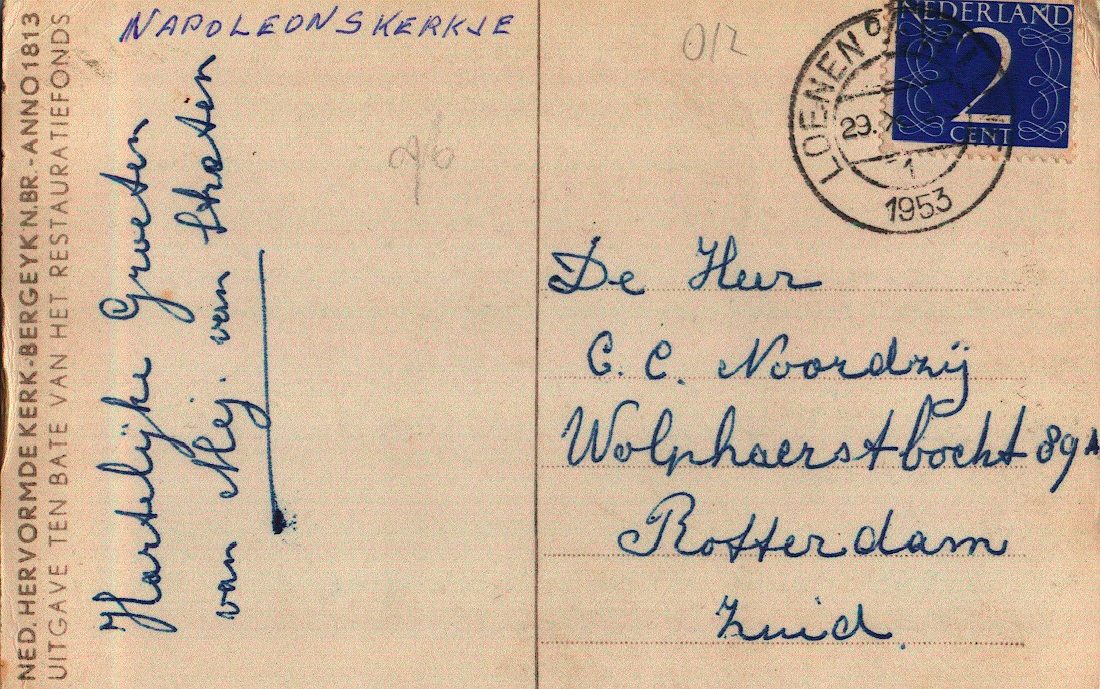 NAPOLEONSKERKJE
NED. HERVORMDE KERK - BERGEYK N.BR. - ANNO 1813
UITGAVE TEN BATE VAN HET RESTAURATIEFONDS
Hartelijke Groeten
van Mej. van Straten
012
LOENEN
29.
1
1953
NEDERLAND
2
CENT
De Heer
C. C. Noordzij
Wolphaerstbocht 89A
Rotterdam
Zuid.